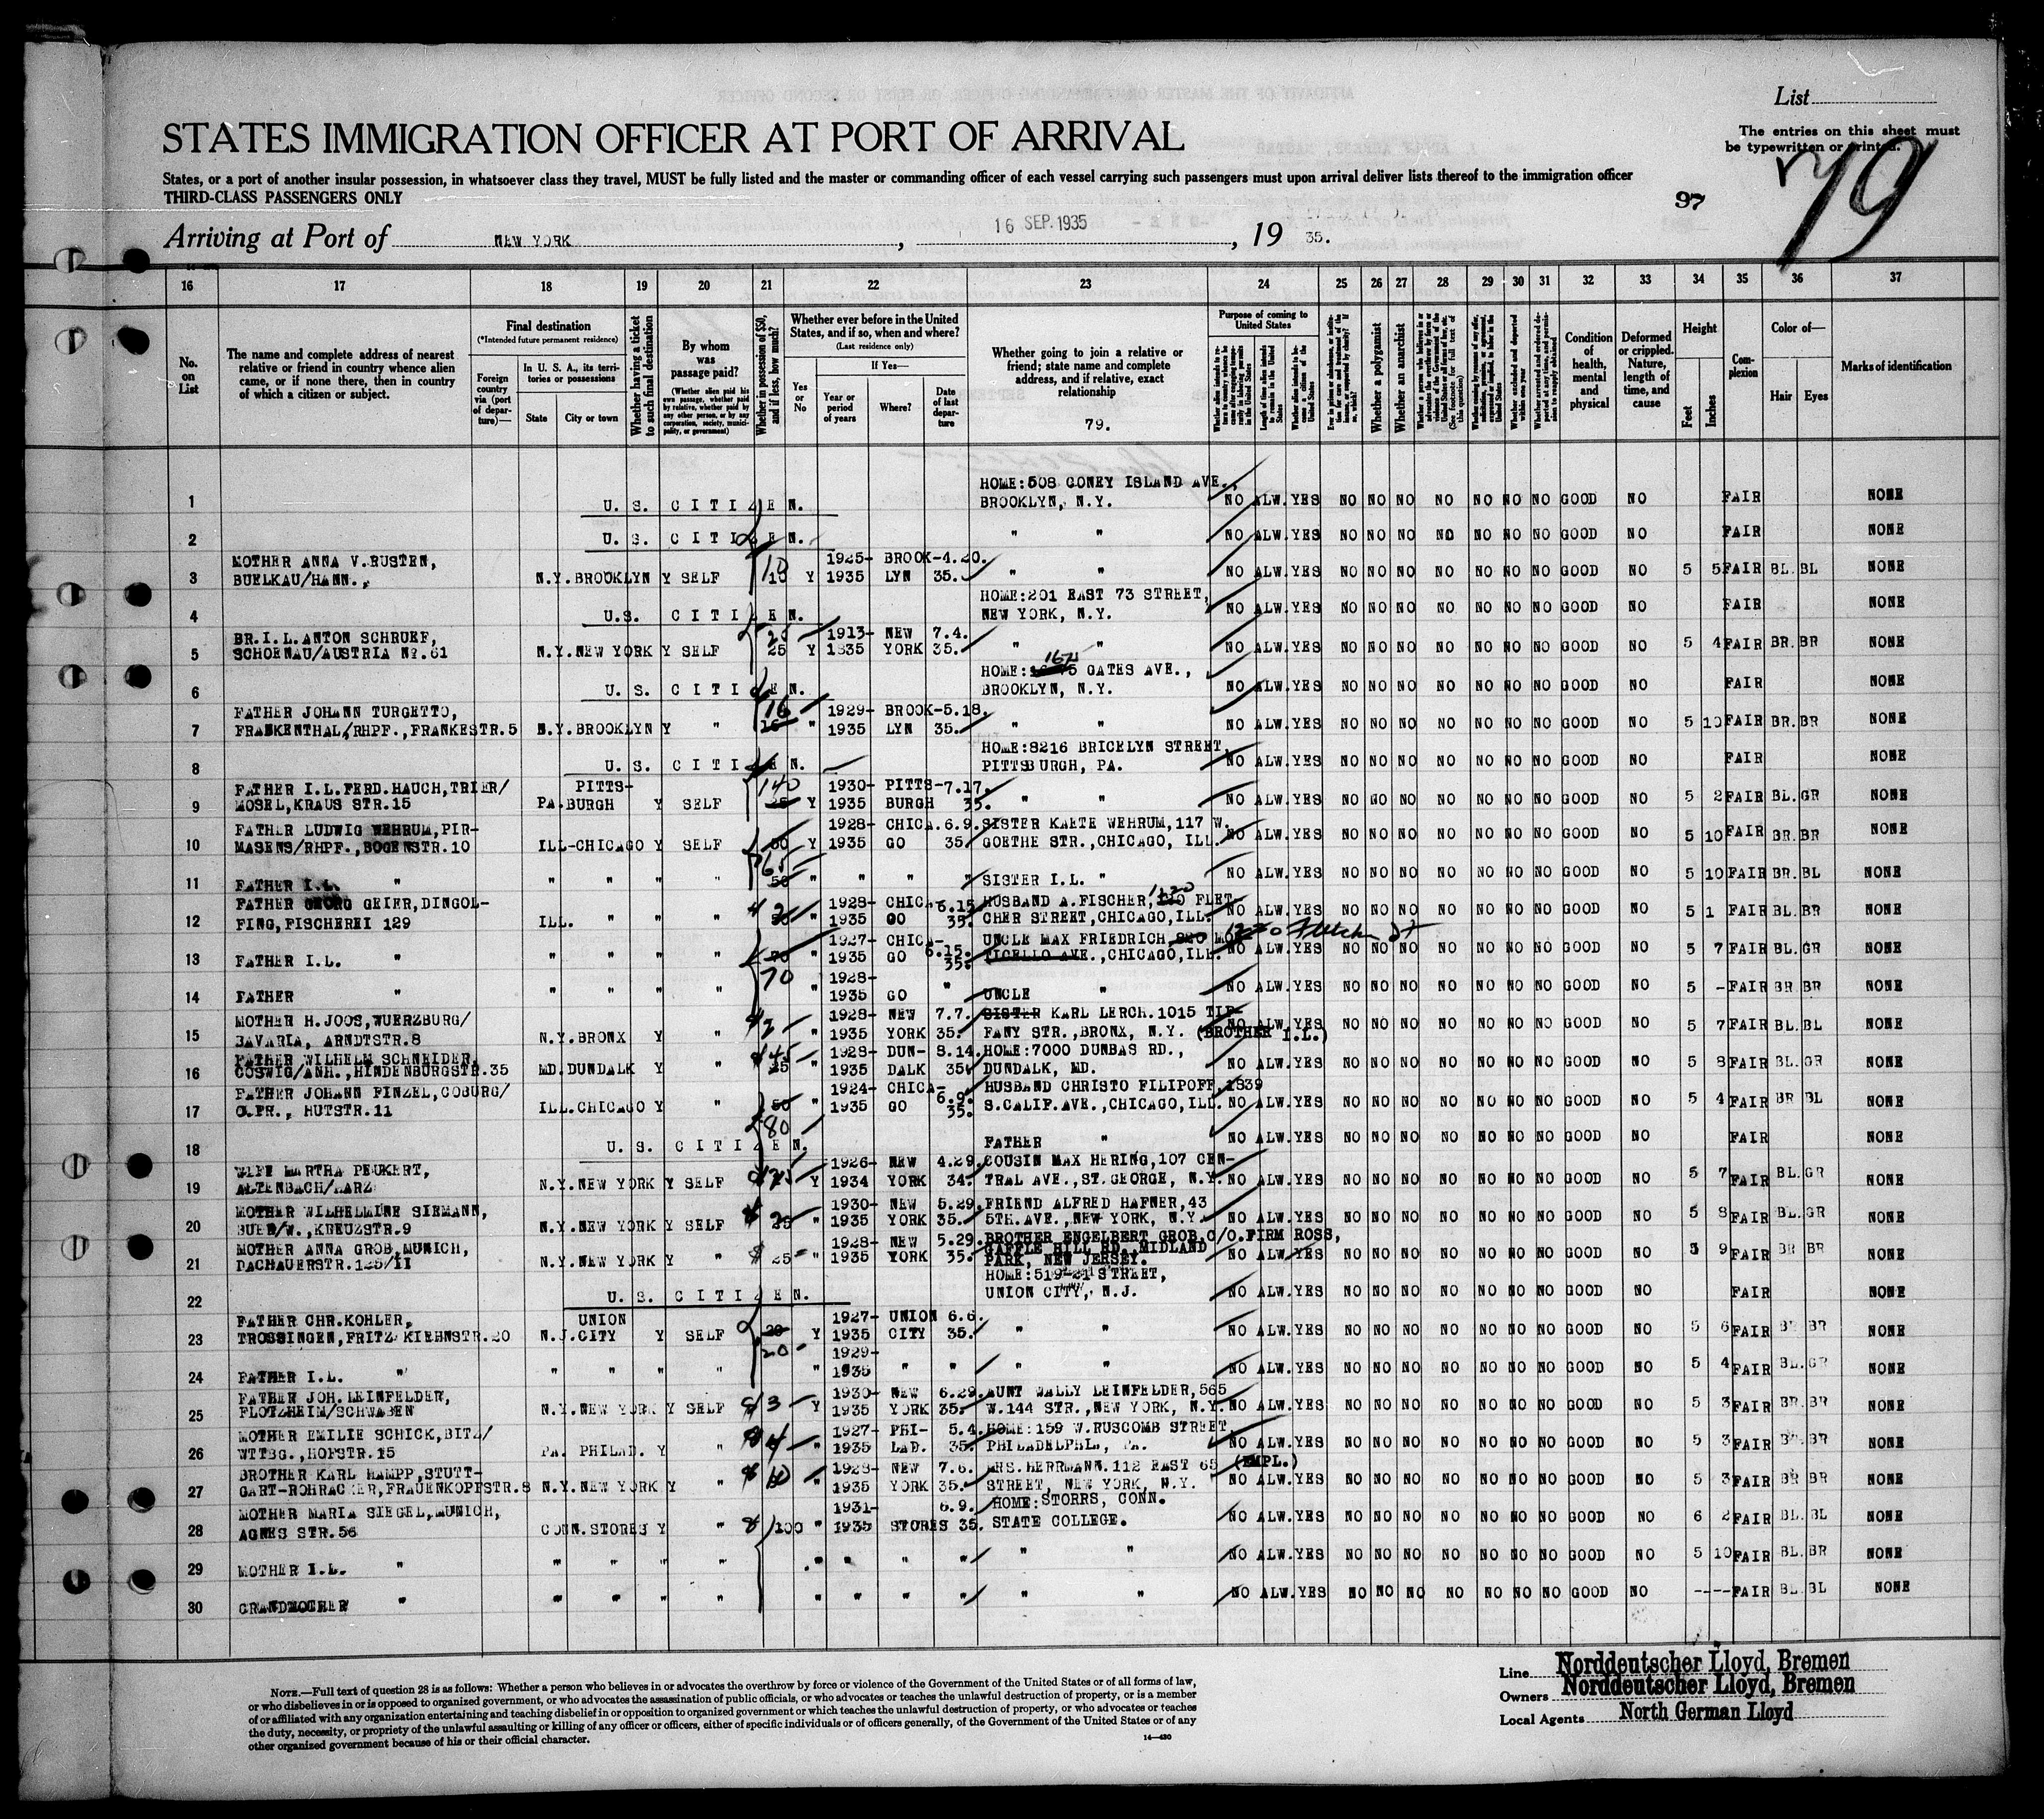 List
STATES IMMIGRATION OFFICER AT PORT OF ARRIVAL
The entries on this sheet must
be typewritten or printed.
79
States, or a port of another insular possession, in whatsoever class they travel, MUST be fully listed and the master or commanding officer of each vessel carrying such passengers must upon arrival deliver lists thereof to the immigration officer
THIRD-CLASS PASSENGERS ONLY
97
Arriving at Port of NEW YORK, 16 SEP. 1935, 19 35.
16 17 18 19 20 21 22 23 24 25 26 27 28 29 30 31 32 33 34 35 36 37
No. on List
The name and complete address of nearest relative or friend in country whence alien came, or if none there, then in country of which a citizen or subject.
Final destination
(*Intended future permanent residence)
Foreign country via (port of departure)—
In U. S. A., its territories or possessions
State
City or town
Whether having a ticket to such final destination
By whom was passage paid?
(Whether alien paid his own passage, whether paid by relative, whether paid by any other person, or by any corporation, society, municipality, or government)
Whether in possession of $50, and if less, how much?
Whether ever before in the United States, and if so, when and where?
(Last residence only)
Yes or No
If Yes—
Year or period of years
Where?
Date of last departure
Whether going to join a relative or friend; state name and complete address, and if relative, exact relationship
79.
Purpose of coming to United States
Length of time alien intends to remain in the United States
Whether alien intends to become a citizen of the United States
Whether a polygamist
Whether an anarchist
Condition of health, mental and physical
Deformed or crippled. Nature, length of time, and cause
Height
Feet
Inches
Complexion
Color of—
Hair
Eyes
Marks of identification
HOME:508 CONEY ISLAND AVE.,
1 U. S. CITIZEN. BROOKLYN, N.Y. NO ALW. YES NO NO NO NO NO NO NO GOOD NO FAIR NONE
2 U. S. CITIZEN. " " NO ALW. YES NO NO NO NO NO NO NO GOOD NO FAIR NONE
MOTHER ANNA V.RUSTEN, 10 1925- BROOK- 4.20.
3 BUELKAU/HANN., N.Y. BROOKLYN Y SELF 15 Y 1935 LYN 35. " " NO ALW. YES NO NO NO NO NO NO NO GOOD NO 5 5 FAIR BL. BL NONE
HOME:201 EAST 73 STREET,
4 U.S. CITIZEN. NEW YORK, N.Y. NO ALW. YES NO NO NO NO NO NO NO GOOD NO FAIR NONE
BR.I.L.ANTON SCHRUEF, 25 1913- NEW 7.4.
5 SCHOENAU/AUSTRIA No.61 N.Y. NEW YORK Y SELF 25 Y 1935 YORK 35. " " NO ALW. YES NO NO NO NO NO NO NO GOOD NO 5 4 FAIR BR. BR NONE
HOME: GATES AVE.,
6 U. S. CITIZEN. BROOKLYN, N.Y. NO ALW. YES NO NO NO NO NO NO NO GOOD NO FAIR NONE
FATHER JOHANN TURGETTO, 16 1929- BROOK- 5.18.
7 FRANKENTHAL/RHPF., FRANKESTR.5 N.Y. BROOKLYN Y " " 1935 LYN 35. " " NO ALW. YES NO NO NO NO NO NO NO GOOD NO 5 10 FAIR BR. BR NONE
HOME:8216 BRICELYN STREET,
8 U. S. CITIZEN. PITTSBURGH, PA. NO ALW. YES NO NO NO NO NO NO NO GOOD NO FAIR NONE
FATHER I.L.FERD.HAUCH,TRIER/ PITTS- 140 1930- PITTS- 7.17.
9 MOSEL,KRAUS STR.15 PA. BURGH Y SELF 25 Y 1935 BURGH 35. " " NO ALW. YES NO NO NO NO NO NO NO GOOD NO 5 2 FAIR BL. GR NONE
FATHER LUDWIG WEHRUM,PIR- 1928- CHICA. 6.9. SISTER KAETE WEHRUM,117 W.
10 MASENS/RHPF.,BOGENSTR.10 ILL-CHICAGO Y SELF 50 Y 1935 GO 35. GOETHE STR.,CHICAGO, ILL. NO ALW. YES NO NO NO NO NO NO NO GOOD NO 5 10 FAIR BR. BR NONE
65
11 FATHER I.L. " " " " " 50 " " " " SISTER I.L. " NO ALW. YES NO NO NO NO NO NO NO GOOD NO 5 10 FAIR BR. BL NONE
FATHER GEORG GEIER,DINGOL- 1928- CHICA- 6.15. HUSBAND A.FISCHER,1220 FLET-
12 FING,FISCHEREI 129 ILL. " " " 1935 GO 35. CHER STREET,CHICAGO,ILL. NO ALW. YES NO NO NO NO NO NO NO GOOD NO 5 1 FAIR BL. BR NONE
1927- CHICA- UNCLE MAX FRIEDRICH MON 1220 Fletcher St
13 FATHER I.L. " " " " " 70 " 1935 GO 6.15. 35. TICELLO AVE.,CHICAGO,ILL. NO ALW. YES NO NO NO NO NO NO NO GOOD NO 5 7 FAIR BL. GR NONE
70 1928-
14 FATHER " " " " " " 1935 GO " UNCLE " NO ALW. YES NO NO NO NO NO NO NO GOOD NO 5 - FAIR BR. BR NONE
MOTHER H.JOOS,WUERZBURG/ 1928- NEW 7.7. SISTER KARL LERCH.1015 TIF-
15 BAVARIA, ARNDTSTR.8 N.Y. BRONX Y " " 1935 YORK 35. FANY STR.,BRONX, N.Y. (BROTHER I.L.) NO ALW. YES NO NO NO NO NO NO NO GOOD NO 5 7 FAIR BL. BL NONE
FATHER WILHELM SCHNEIDER, 45 1928- DUN- 8.14. HOME:7000 DUNBAS RD.,
16 COSWIG/ANH.,HINDENBURGSTR.35 MD. DUNDALK Y " 25 " 1935 DALK 35. DUNDALK, MD. NO ALW. YES NO NO NO NO NO NO NO GOOD NO 5 8 FAIR BL. GR NONE
FATHER JOHANN FINZEL,COBURG/ 1924- CHICA- 6.9. HUSBAND CHRISTO FILIPOFF,1839
17 O.FR., HUTSTR.11 ILL. CHICAGO Y " 50 " 1935 GO 35. S.CALIF.AVE.,CHICAGO,ILL. NO ALW. YES NO NO NO NO NO NO NO GOOD NO 5 4 FAIR BR BL NONE
80
18 U. S. CITIZEN. FATHER " NO ALW. YES NO NO NO NO NO NO NO GOOD NO FAIR NONE
WIFE MARTHA PEUKERT, 1926- NEW 4.29. COUSIN MAX HERING,107 CEN-
19 ALTENBACH/HARZ N.Y. NEW YORK Y SELF Y 1934 YORK 34. TRAL AVE.,ST.GEORGE, N.Y. NO ALW. YES NO NO NO NO NO NO NO GOOD NO 5 7 FAIR BL. GR NONE
MOTHER WILHELMINE SIEMANN, 1930- NEW 5.29. FRIEND ALFRED HAFNER,43
20 BUER/W.,KREUZSTR.9 N.Y. NEW YORK Y SELF 25 " 1935 YORK 35. 5TH.AVE.,NEW YORK, N.Y. NO ALW. YES NO NO NO NO NO NO NO GOOD NO 5 8 FAIR BL. GR NONE
MOTHER ANNA GROB,MUNICH, 1928- NEW 5.29. BROTHER ENGELBERT GROB,C/O.FIRM ROSS,
21 DACHAUERSTR.125/II N.Y. NEW YORK Y " $ 25- " 1935 YORK 35. GAFFLE HILL RD. MIDLAND NO ALW. YES NO NO NO NO NO NO NO GOOD NO 5 9 FAIR BR BR NONE
PARK, NEW JERSEY.
HOME:519-21 STREET,
22 U. S. CITIZEN. UNION CITY, N.J. NO ALW. YES NO NO NO NO NO NO NO GOOD NO FAIR NONE
FATHER CHR.KOHLER, UNION 1927- UNION 6.6.
23 TROSSINGEN,FRITZ KIEHNSTR.20 N.J. CITY Y SELF 20 Y 1935 CITY 35. " " NO ALW. YES NO NO NO NO NO NO NO GOOD NO 5 6 FAIR BR BR NONE
20- 1929-
24 FATHER I.L. " " " " " " 1935 " " " " NO ALW. YES NO NO NO NO NO NO NO GOOD NO 5 4 FAIR BL. GR NONE
FATHER JOH.LEINFELDER, 1930- NEW 6.29. AUNT WALLY LEINFELDER,565
25 FLOTZHEIM/SCHWABEN N.Y. NEW YORK Y SELF $ 3- Y 1935 YORK 35. W.144 STR.,NEW YORK, N.Y. NO ALW. YES NO NO NO NO NO NO NO GOOD NO 5 3 FAIR BR. BR NONE
MOTHER EMILIE SCHICK,BITZ/ 1927- PHI- 5.4. HOME:159 W.RUSCOMB STREET,
26 WTTBG.,HOFSTR.15 PA. PHILAD. Y " $ 4- " 1935 LAD. 35. PHILADELPHI., PA. NO ALW. YES NO NO NO NO NO NO NO GOOD NO 5 3 FAIR BR. BR NONE
BROTHER KARL HAMPP,STUTT- 1928- NEW 7.6. MRS.HERRMANN.112 EAST 65 (EMPL.)
27 GART-ROHRACKER,FRAUENKOPFSTR.8 N.Y. NEW YORK Y " $ 10 " 1935 YORK 35. STREET, NEW YORK, N.Y. NO ALW. YES NO NO NO NO NO NO NO GOOD NO 5 3 FAIR BR BR NONE
MOTHER MARIA SIEGEL,MUNICH, 1931- 6.9. HOME:STORRS, CONN.
28 AGNES STR.56 CONN. STORES Y " $ 100 " 1935 STORES 35. STATE COLLEGE. NO ALW. YES NO NO NO NO NO NO NO GOOD NO 6 2 FAIR BL. BL NONE
29 MOTHER I.L. " " " " " " " " " " " NO ALW. YES NO NO NO NO NO NO NO GOOD NO 5 10 FAIR BL. BR NONE
30 GRANDMOTHER " " " " " " " " " " " NO ALW. YES NO NO NO NO NO NO NO GOOD NO ---- FAIR BL. BL NONE
NOTE.—Full text of question 28 is as follows: Whether a person who believes in or advocates the overthrow by force or violence of the Government of the United States or of all forms of law,
or who disbelieves in or is opposed to organized government, or who advocates the assassination of public officials, or who advocates or teaches the unlawful destruction of property, or is a member
of or affiliated with any organization entertaining and teaching disbelief in or opposition to organized government or which teaches the unlawful destruction of property, or who advocates or teaches
the duty, necessity, or propriety of the unlawful assaulting or killing of any officer or officers, either of specific individuals or of officers generally, of the Government of the United States or of any
other organized government because of his or their official character.
14—430
Line Norddeutscher Lloyd, Bremen
Owners Norddeutscher Lloyd, Bremen
Local Agents North German Lloyd